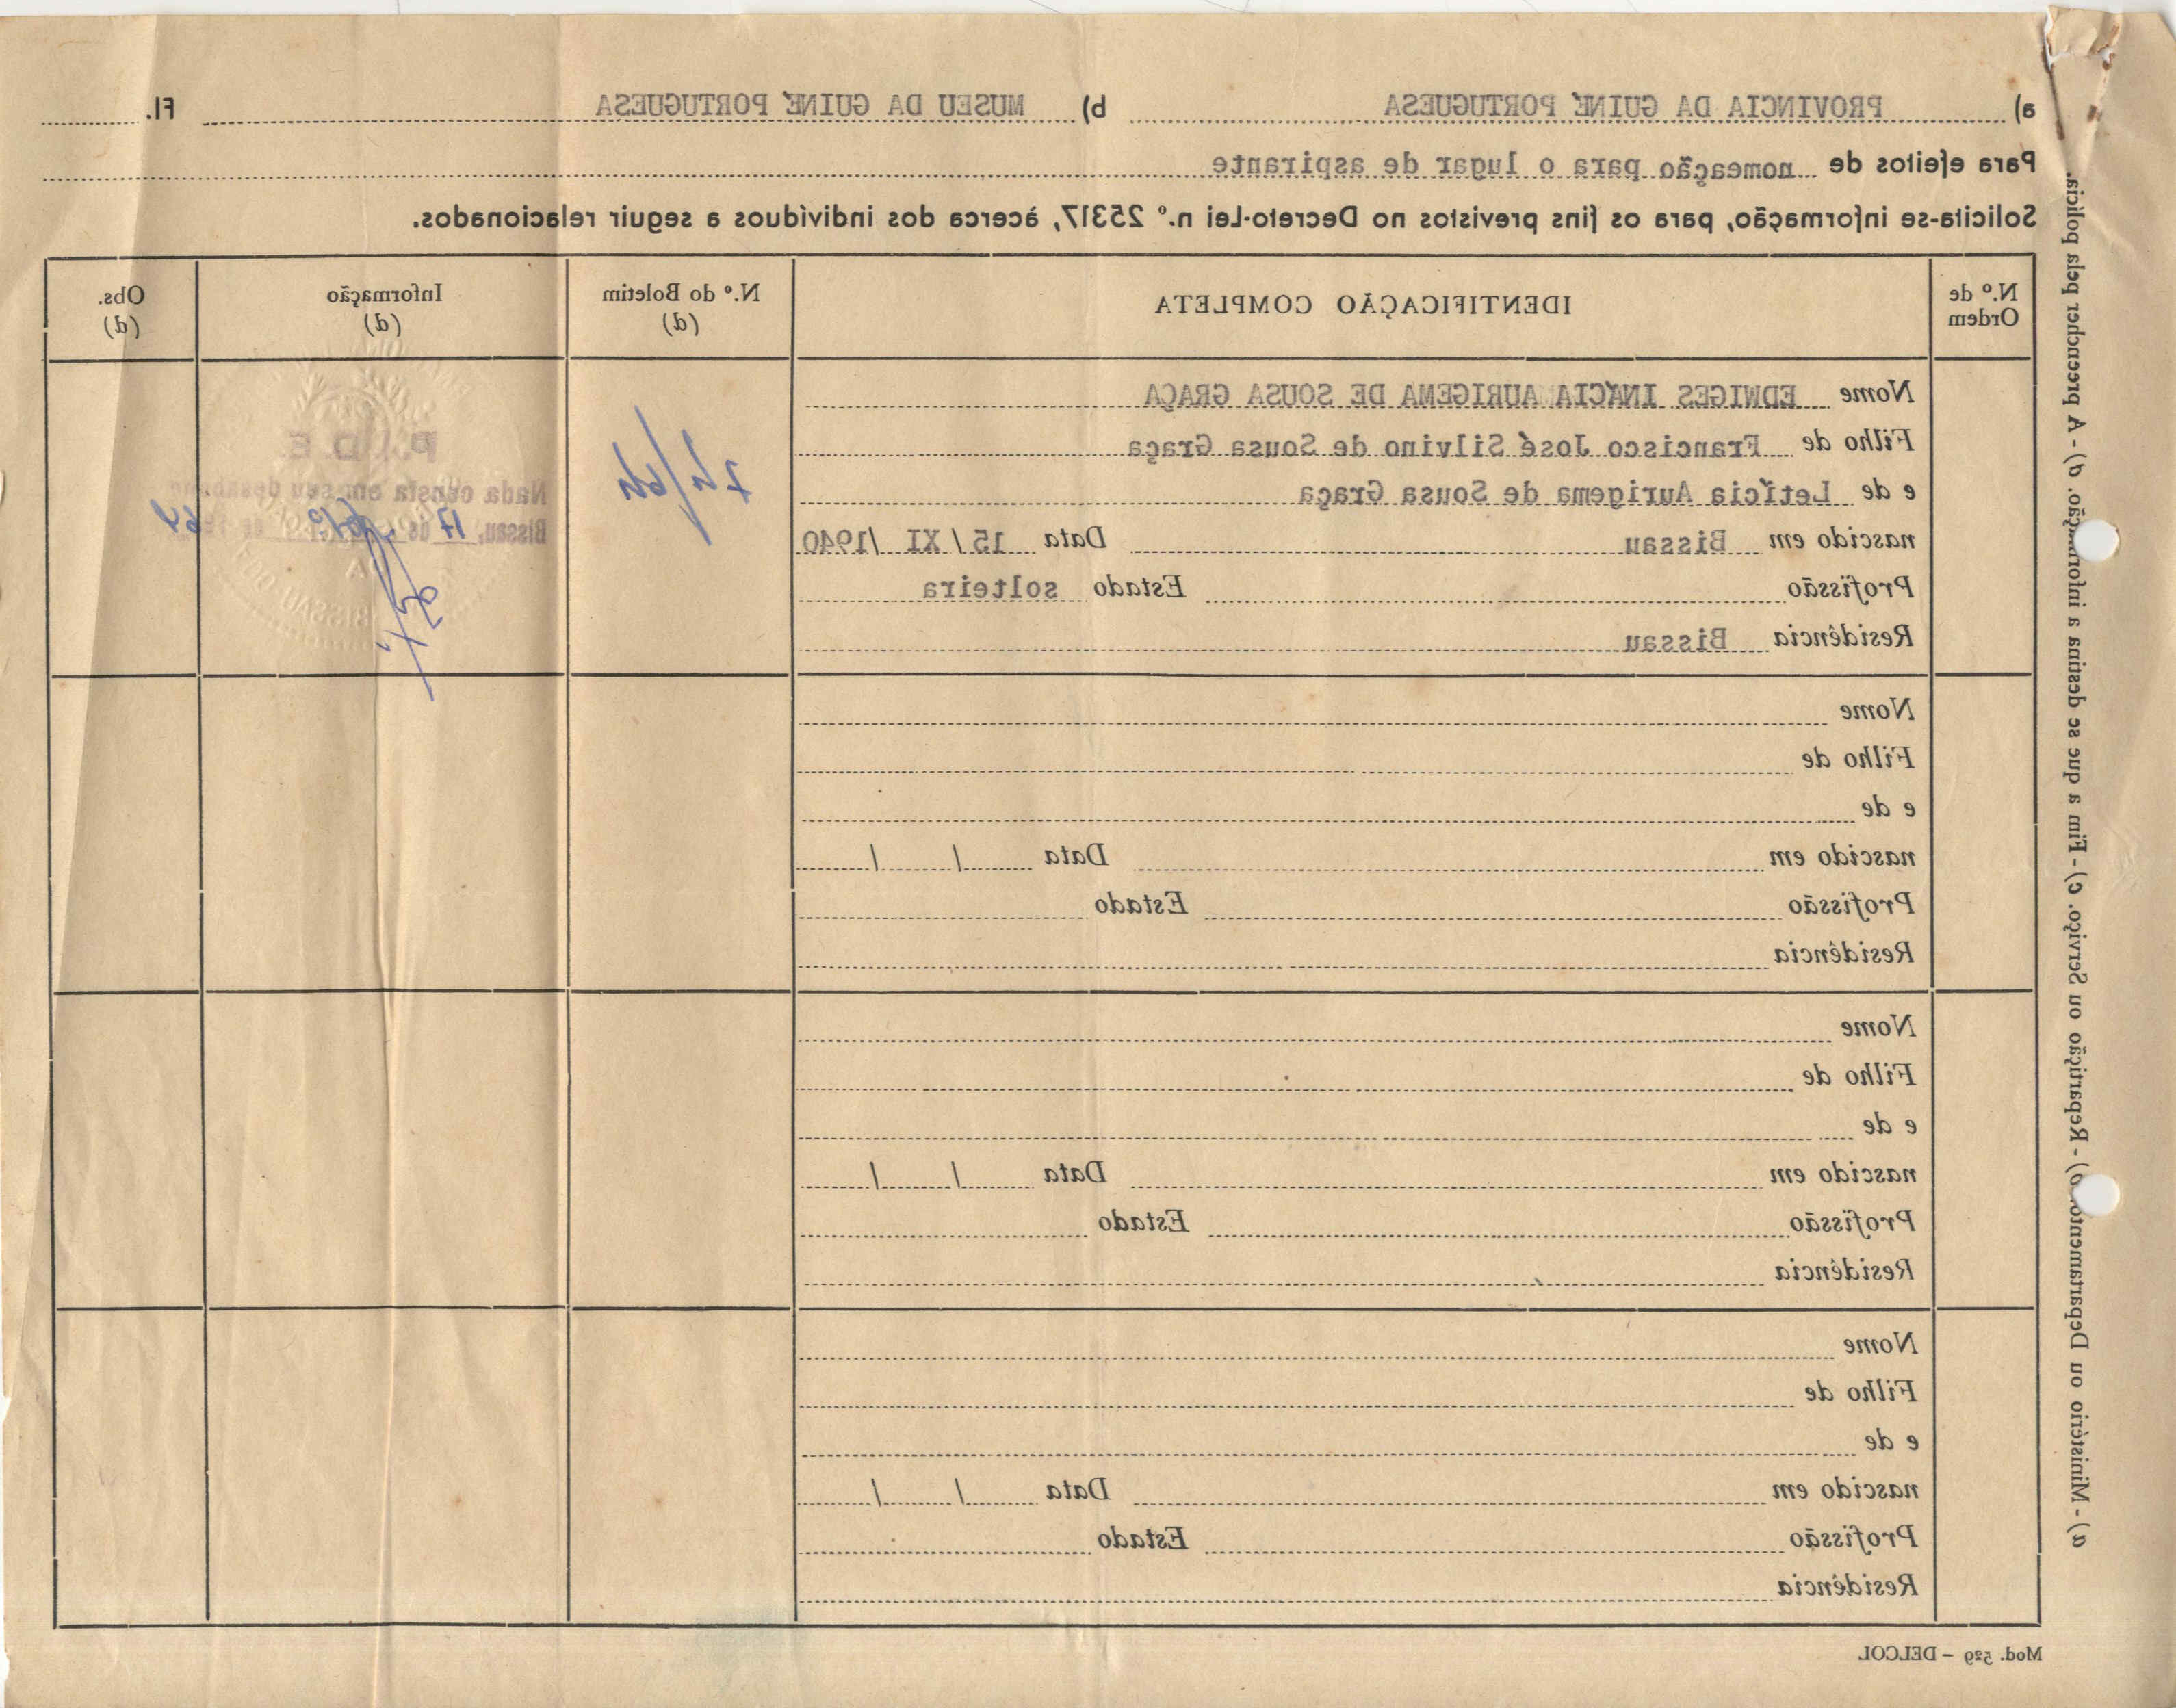 a) PROVINCIA DA GUINÉ PORTUGUESA b) MUSEU DA GUINÉ PORTUGUESA Fl.
Para efeitos de nomeação para o lugar de aspirante
Solicita-se informação, para os fins previstos no Decreto-Lei n.º 25317, àcerca dos indivíduos a seguir relacionados.
N.º de Ordem IDENTIFICAÇÃO COMPLETA N.º do Boletim (d) Informação (d) Obs. (d)
Nome EDWIGES INÁCIA AURIGEMA DE SOUSA GRAÇA
Filho de Francisco José Silvino de Sousa Graça
e de Letícia Aurigema de Sousa Graça
nascido em Bissau Data 15 / XI /1940
Profissão Estado solteira
Residência Bissau
P.I.D.E.
Nada consta em seu desabono
Bissau, 17 de de 64
Nome
Filho de
e de
nascido em Data / /
Profissão Estado
Residência
Nome
Filho de
e de
nascido em Data / /
Profissão Estado
Residência
Nome
Filho de
e de
nascido em Data / /
Profissão Estado
Residência
Mod. 529 – DELCOL
a) - Ministério ou Departamento. b) - Repartição ou Serviço. c) - Fim a que se destina a informação. d) - A preencher pela polícia.